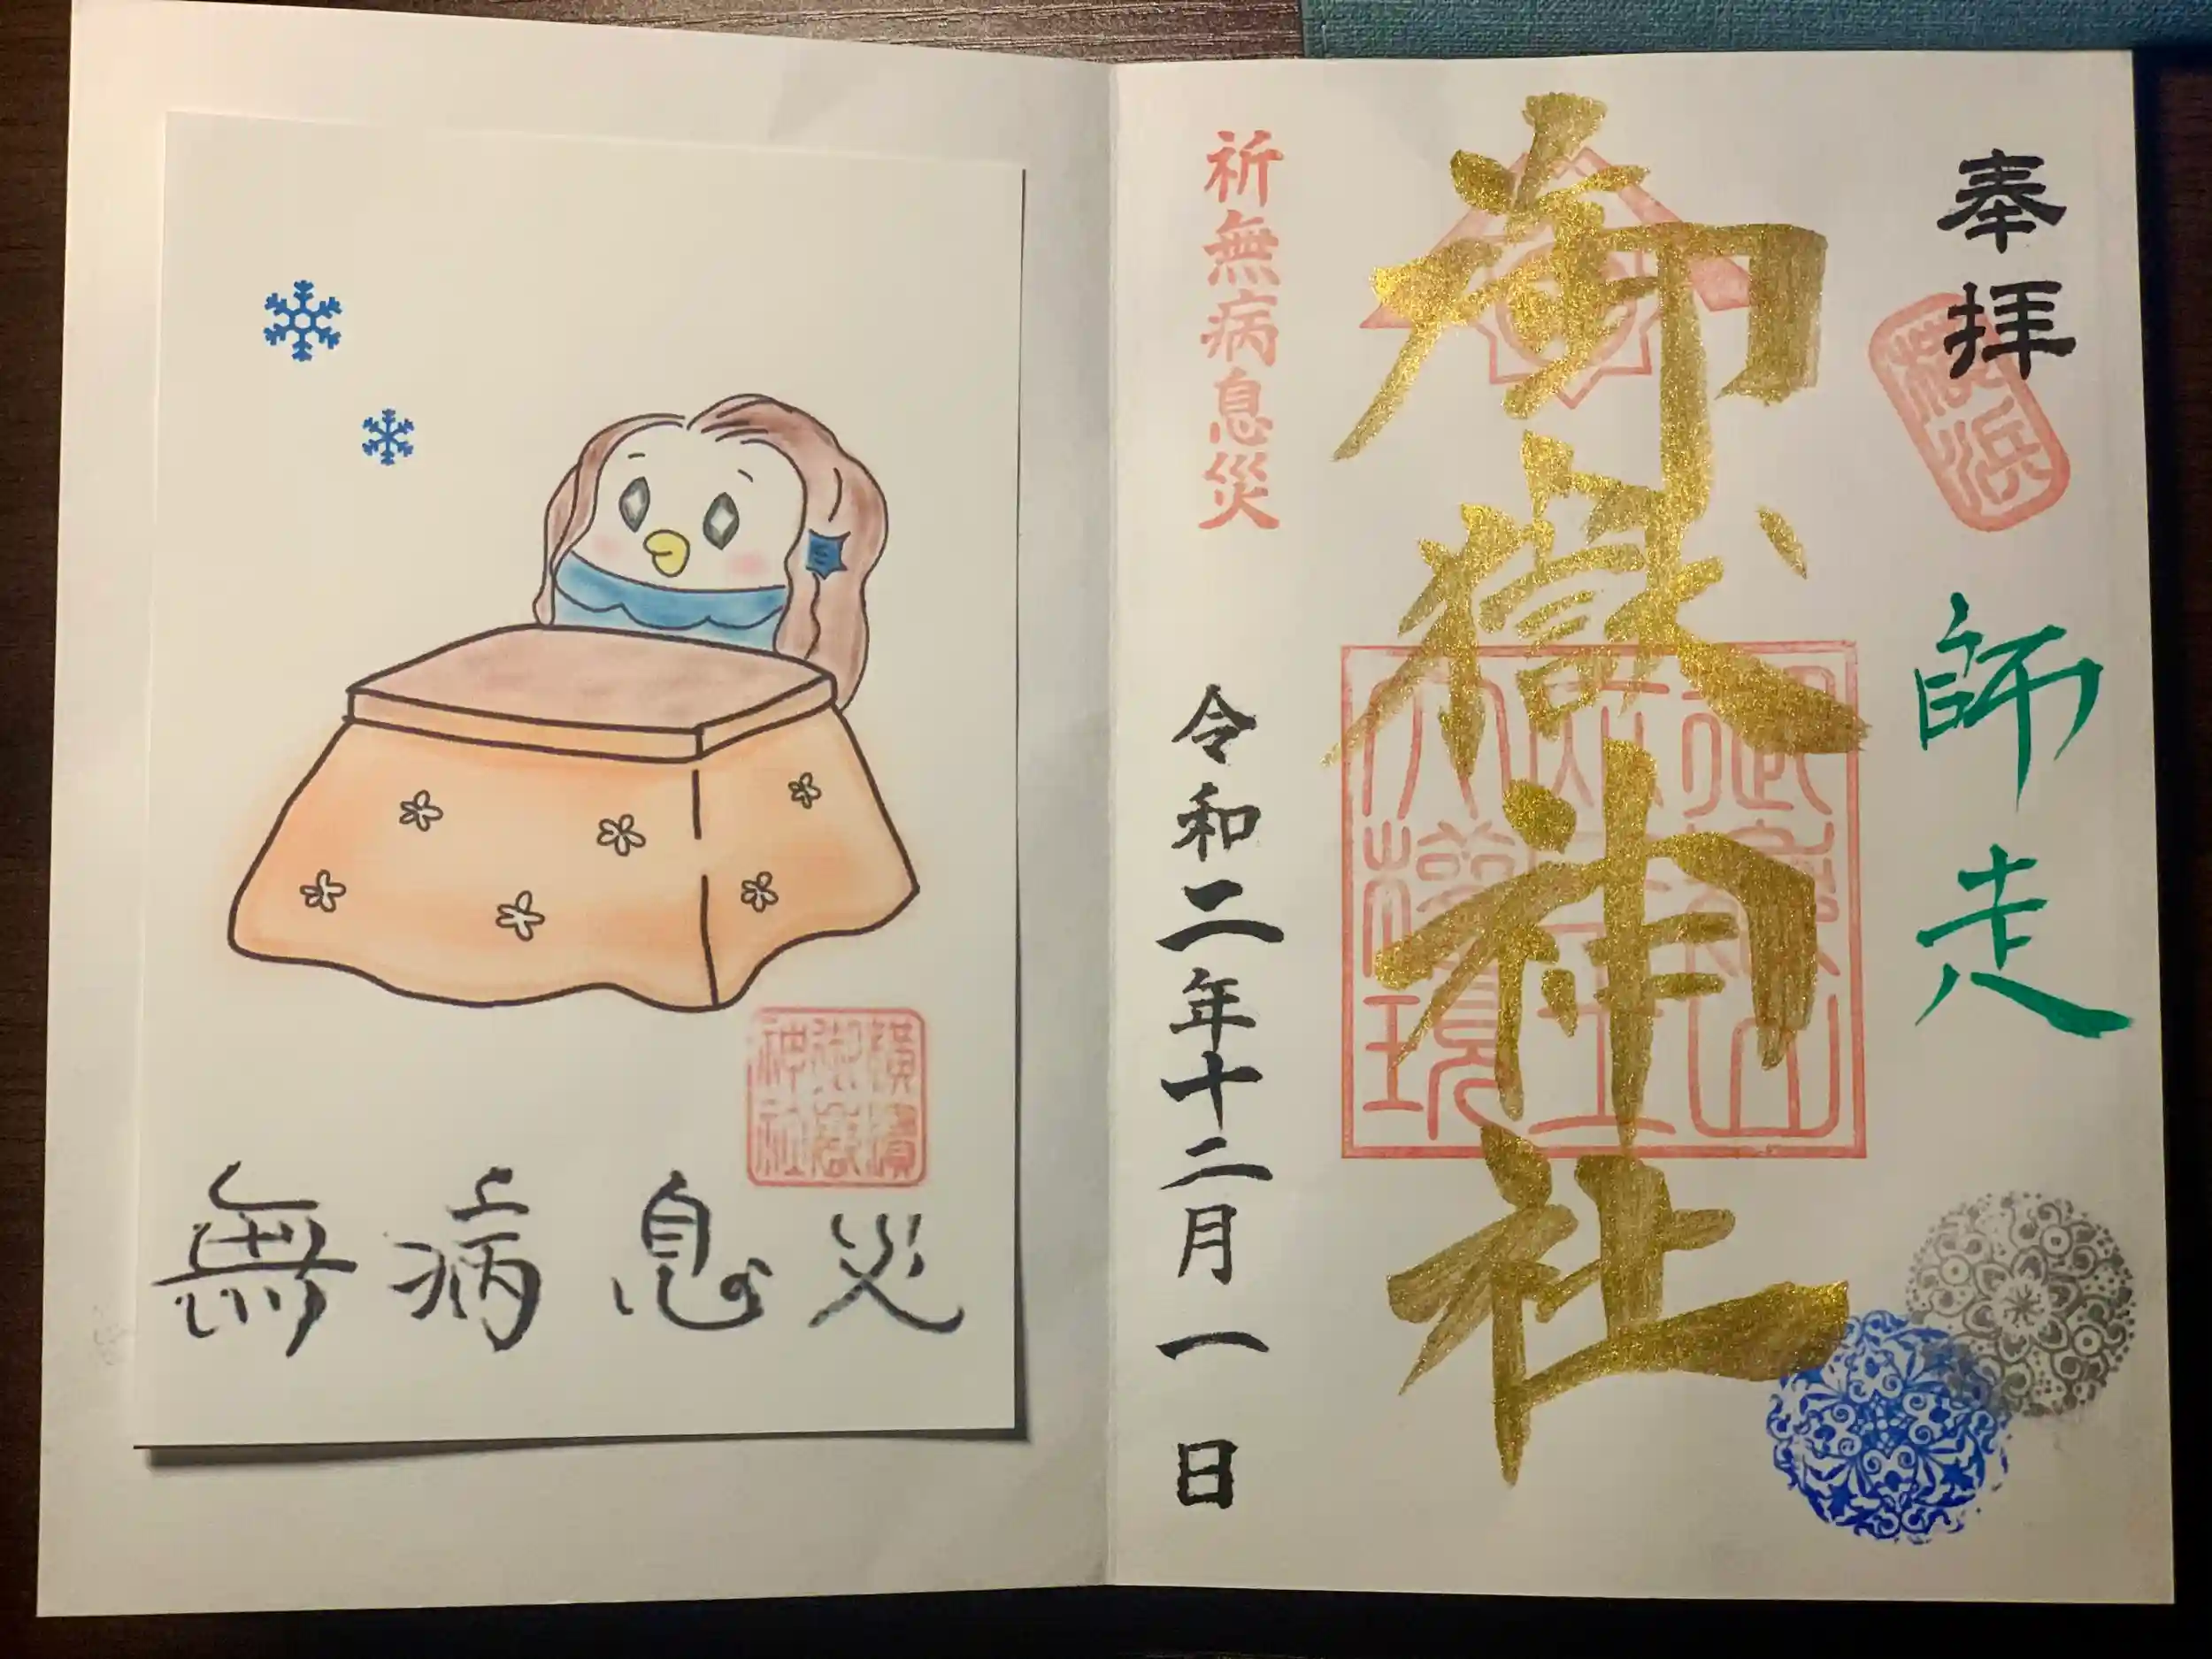 奉拝
横浜
師走
御嶽神社
祈無病息災
令和二年十二月一日
横濱
御嶽
神社
無病息災